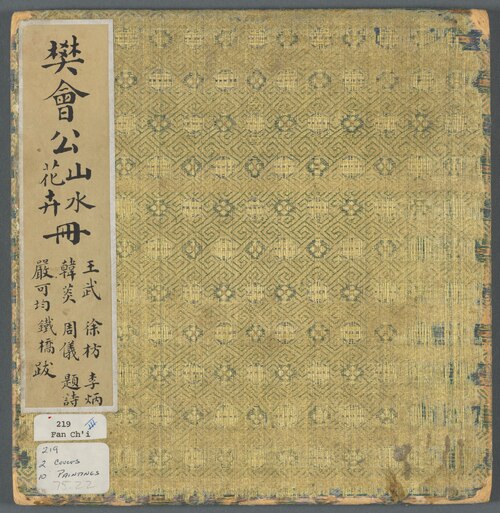 樊會公山水花卉冊
王武 徐枋 李炳
韓菼 周儀 題詩
嚴可均鐵橋跋
219 III
Fan Ch'i
219
2 COVERS
10 PAINTINGS
75.22